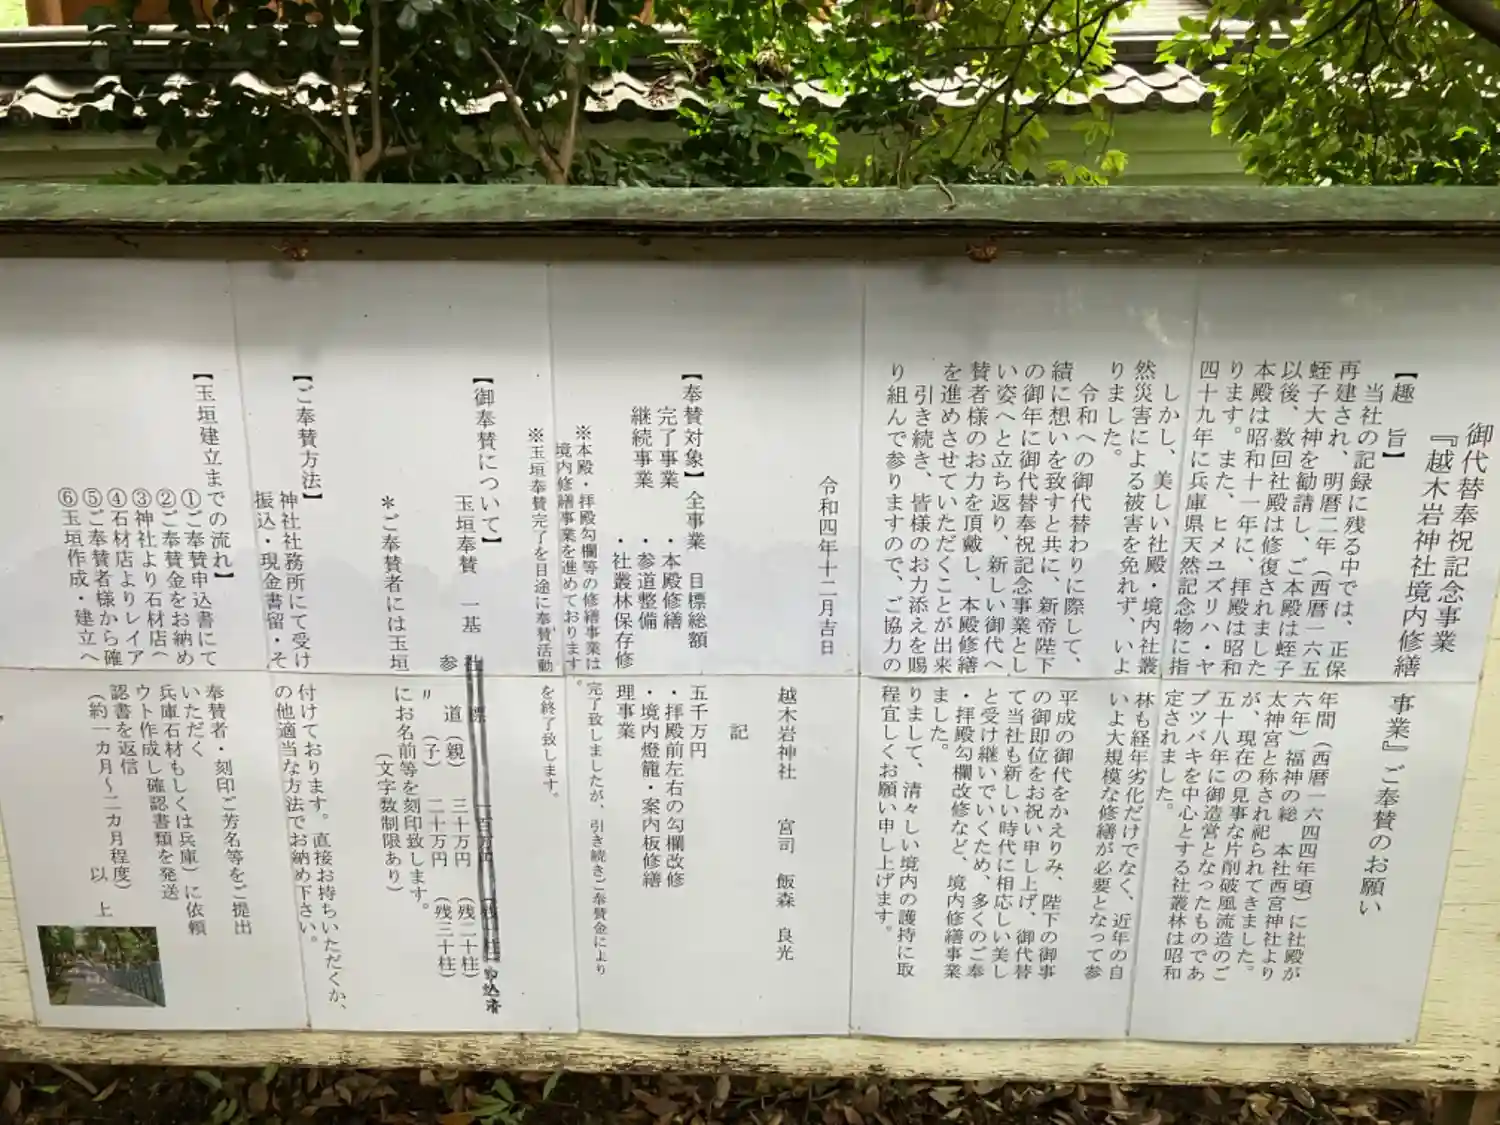 御代替奉祝記念事業
『越木岩神社境内修繕事業』ご奉賛のお願い
【趣　旨】
当社の記録に残る中では、正保年間（西暦一六四四年頃）に社殿が
再建され、明暦二年（西暦一六五六年）福神の総本社西宮神社より
蛭子大神を勧請し、ご本殿は蛭子太神宮と称され祀られてきました。
以後、数回社殿は修復されましたが、現在の見事な片削破風流造のご
本殿は昭和十一年に、拝殿は昭和五十八年に御造営となったものであ
ります。また、ヒメユズリハ・ヤブツバキを中心とする社叢林は昭和
四十九年に兵庫県天然記念物に指定されました。
しかし、美しい社殿・境内社叢林も経年劣化だけでなく、近年の自
然災害による被害を免れず、いよいよ大規模な修繕が必要となって参
りました。
令和への御代替わりに際して、平成の御代をかえりみ、陛下の御事
績に想いを致すと共に、新帝陛下の御即位をお祝い申し上げ、御代替
の御年に御代替奉祝記念事業として当社も新しい時代に相応しい美し
い姿へと立ち返り、新しい御代へと受け継いでいくため、多くのご奉
賛者様のお力を頂戴し、本殿修繕・拝殿勾欄改修など、境内修繕事業
を進めさせていただくことが出来ました。
引き続き、皆様のお力添えを賜りまして、清々しい境内の護持に取
り組んで参りますので、ご協力の程宜しくお願い申し上げます。
令和四年十二月吉日
越木岩神社　宮司　飯森　良光
記
【奉賛対象】全事業　目標総額　五千万円
完了事業　・本殿修繕　・拝殿前左右の勾欄改修
継続事業　・参道整備　・境内燈籠・案内板修繕
・社叢林保存修理事業
※本殿・拝殿勾欄等の修繕事業は完了致しましたが、引き続きご奉賛金により
境内修繕事業を進めております。
※玉垣奉賛完了を目途に奉賛活動を終了致します。
【御奉賛について】
玉垣奉賛　一基　生標　一百万円　（残　柱）申込済
参　道（親）　三十万円　（残二十柱）
〃　（子）　二十万円　（残三十柱）
＊ご奉賛者には玉垣にお名前等を刻印致します。
（文字数制限あり）
【ご奉賛方法】
神社社務所にて受け付けております。直接お持ちいただくか、
振込・現金書留・その他適当な方法でお納め下さい。
【玉垣建立までの流れ】
①ご奉賛申込書にて奉賛者・刻印ご芳名等をご提出
②ご奉賛金をお納めいただく
③神社より石材店へ兵庫石材もしくは兵庫）に依頼
④石材店よりレイアウト作成し確認書類を発送
⑤ご奉賛者様から確認書を返信
⑥玉垣作成・建立へ（約一カ月～二カ月程度）
以　上